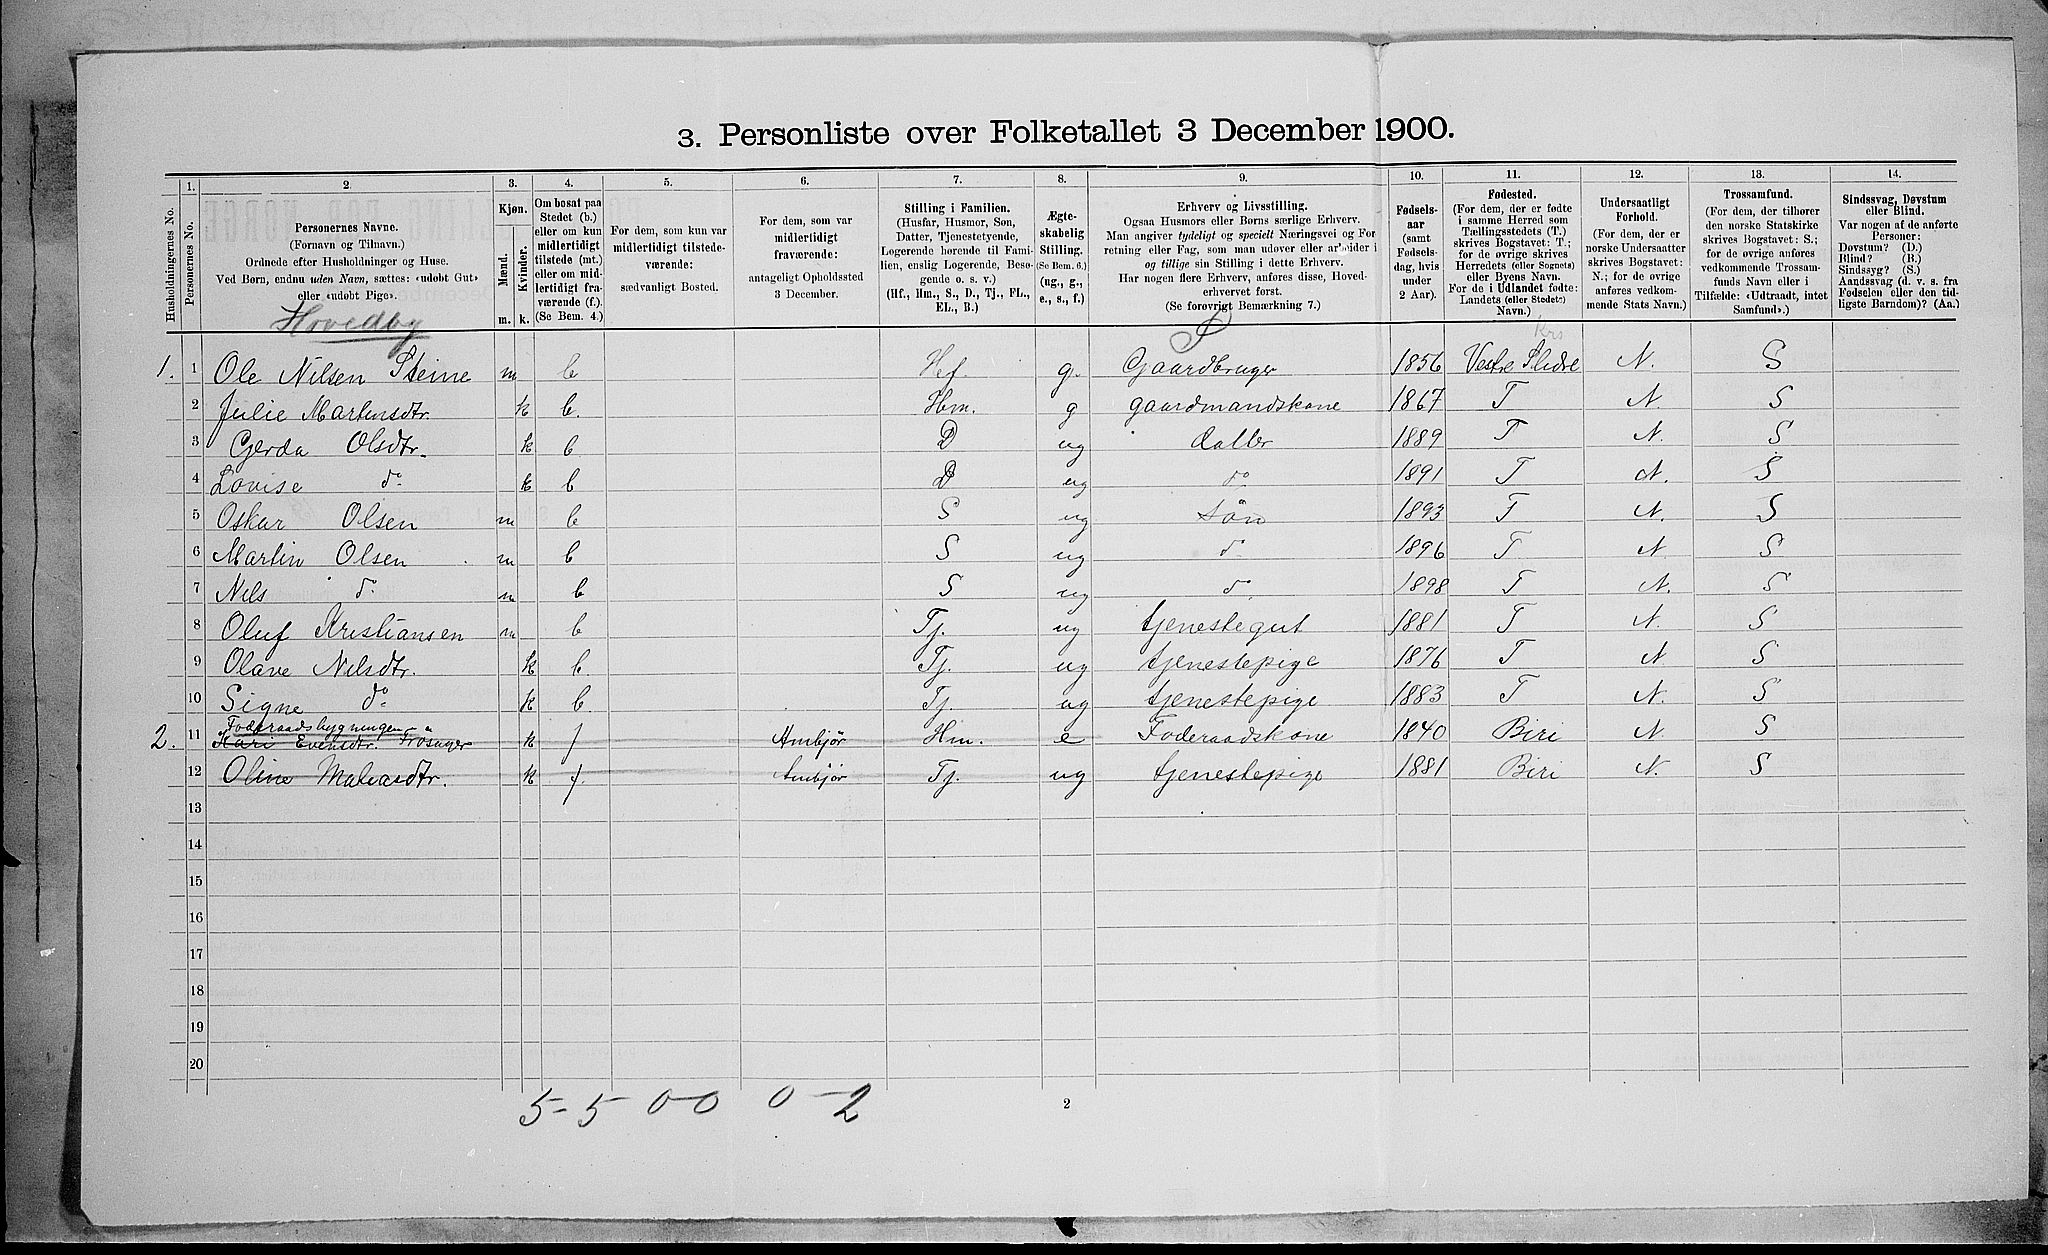 3. Personliste over Folketallet 3 December 1900.
1. 2. 3. 4. 5. 6. 7. 8. 9. 10. 11. 12. 13. 14.
Husholdningernes No.
Personernes No.
Personernes Navne.
(Fornavn og Tilnavn.)
Ordnede efter Husholdninger og Huse.
Ved Børn, endnu uden Navn, sættes: «udøbt Gut»
eller «udøbt Pige».
Kjøn.
Mænd.
Kvinder.
m. k.
Om bosat paa
Stedet (b.)
eller om kun
midlertidigt
tilstede (mt.)
eller om mid-
lertidigt fra-
værende (f.)
(Se Bem. 4.)
For dem, som kun var
midlertidigt tilstede-
værende:
sædvanligt Bosted.
For dem, som var
midlertidigt
fraværende:
antageligt Opholdssted
3 December.
Stilling i Familien.
(Husfar, Husmor, Søn,
Datter, Tjenestetyende,
Logerende hørende til Fami-
lien, enslig Logerende, Besø-
gende o. s. v.)
(Hf., Hm., S., D., Tj., FL.,
EL., B.)
Ægte-
skabelig
Stilling.
(Se Bem. 6.)
(ug., g.,
e., s., f.)
Erhverv og Livsstilling.
Ogsaa Husmors eller Børns særlige Erhverv.
Man angiver tydeligt og specielt Næringsvei og For
retning eller Fag, som man udøver eller arbeider i
og tillige sin Stilling i dette Erhverv.
Har nogen flere Erhverv, anføres disse, Hoved-
erhvervet først.
(Se forøvrigt Bemærkning 7.)
Fødsels-
aar
(samt
Fødsels-
dag, hvis
under
2 Aar).
Fødested.
(For dem, der er fødte
i samme Herred som
Tællingsstedets (T.)
skrives Bogstavet: T.;
for de øvrige skrives
Herredets (eller Sognets)
eller Byens Navn.
For de i Udlandet fødte:
Landets (eller Stedets)
Navn.)
Undersaatligt
Forhold.
(For dem, der er
norske Undersaatter
skrives Bogstavet:
N.; for de øvrige
anføres vedkom-
mende Stats Navn.)
Trossamfund.
(For dem, der tilhører
den norske Statskirke
skrives Bogstavet: S.;
for de øvrige anføres
vedkommende Trossam-
funds Navn eller i
Tilfælde: «Udtraadt, intet
Samfund».)
Sindssvag, Døvstum
eller Blind.
Var nogen af de anførte
Personer:
Døvstum? (D.)
Blind? (B.)
Sindssyg? (S.)
Aandssvag (d. v. s. fra
Fødselen eller den tid-
ligste Barndom)? (Aa.)
Hovedby
1. 1 Ole Nilsen Steine m b Hf. g. Gaardbruger 1856 Vestre Slidre N. S
2 Julie Martinsdtr. k b. Hm. g gaardmandskone 1867 T N. S
3 Gerda Olsdtr. k b D ug datter 1889 T N. S
4 Lovise do k b D ug do 1891 T N. S
5 Oskar Olsen m b S ug søn 1893 T N. S
6 Martin Olsen m b S ug do 1896 T N S
7 Nils do m b S ug do 1898 T N. S
8 Oluf Kristiansen m b Tj. ug tjenestegut 1881 T N. S
9 Olave Nilsdtr. k b Tj. ug tjenestepige 1876 T N S
10 Signe do k b. Tj. ug tjenestepige 1883 T N. S
Foderaadsbygningen
2. 11 Kari Evensdtr. k f Hm. e Foderaadskone 1840 Biri N S
12 Oline k f. Tj. ug tjenestepige 1881 Biri N. S
13
14
15
16
17
18
19
20
5-5 0-0 0-2
2